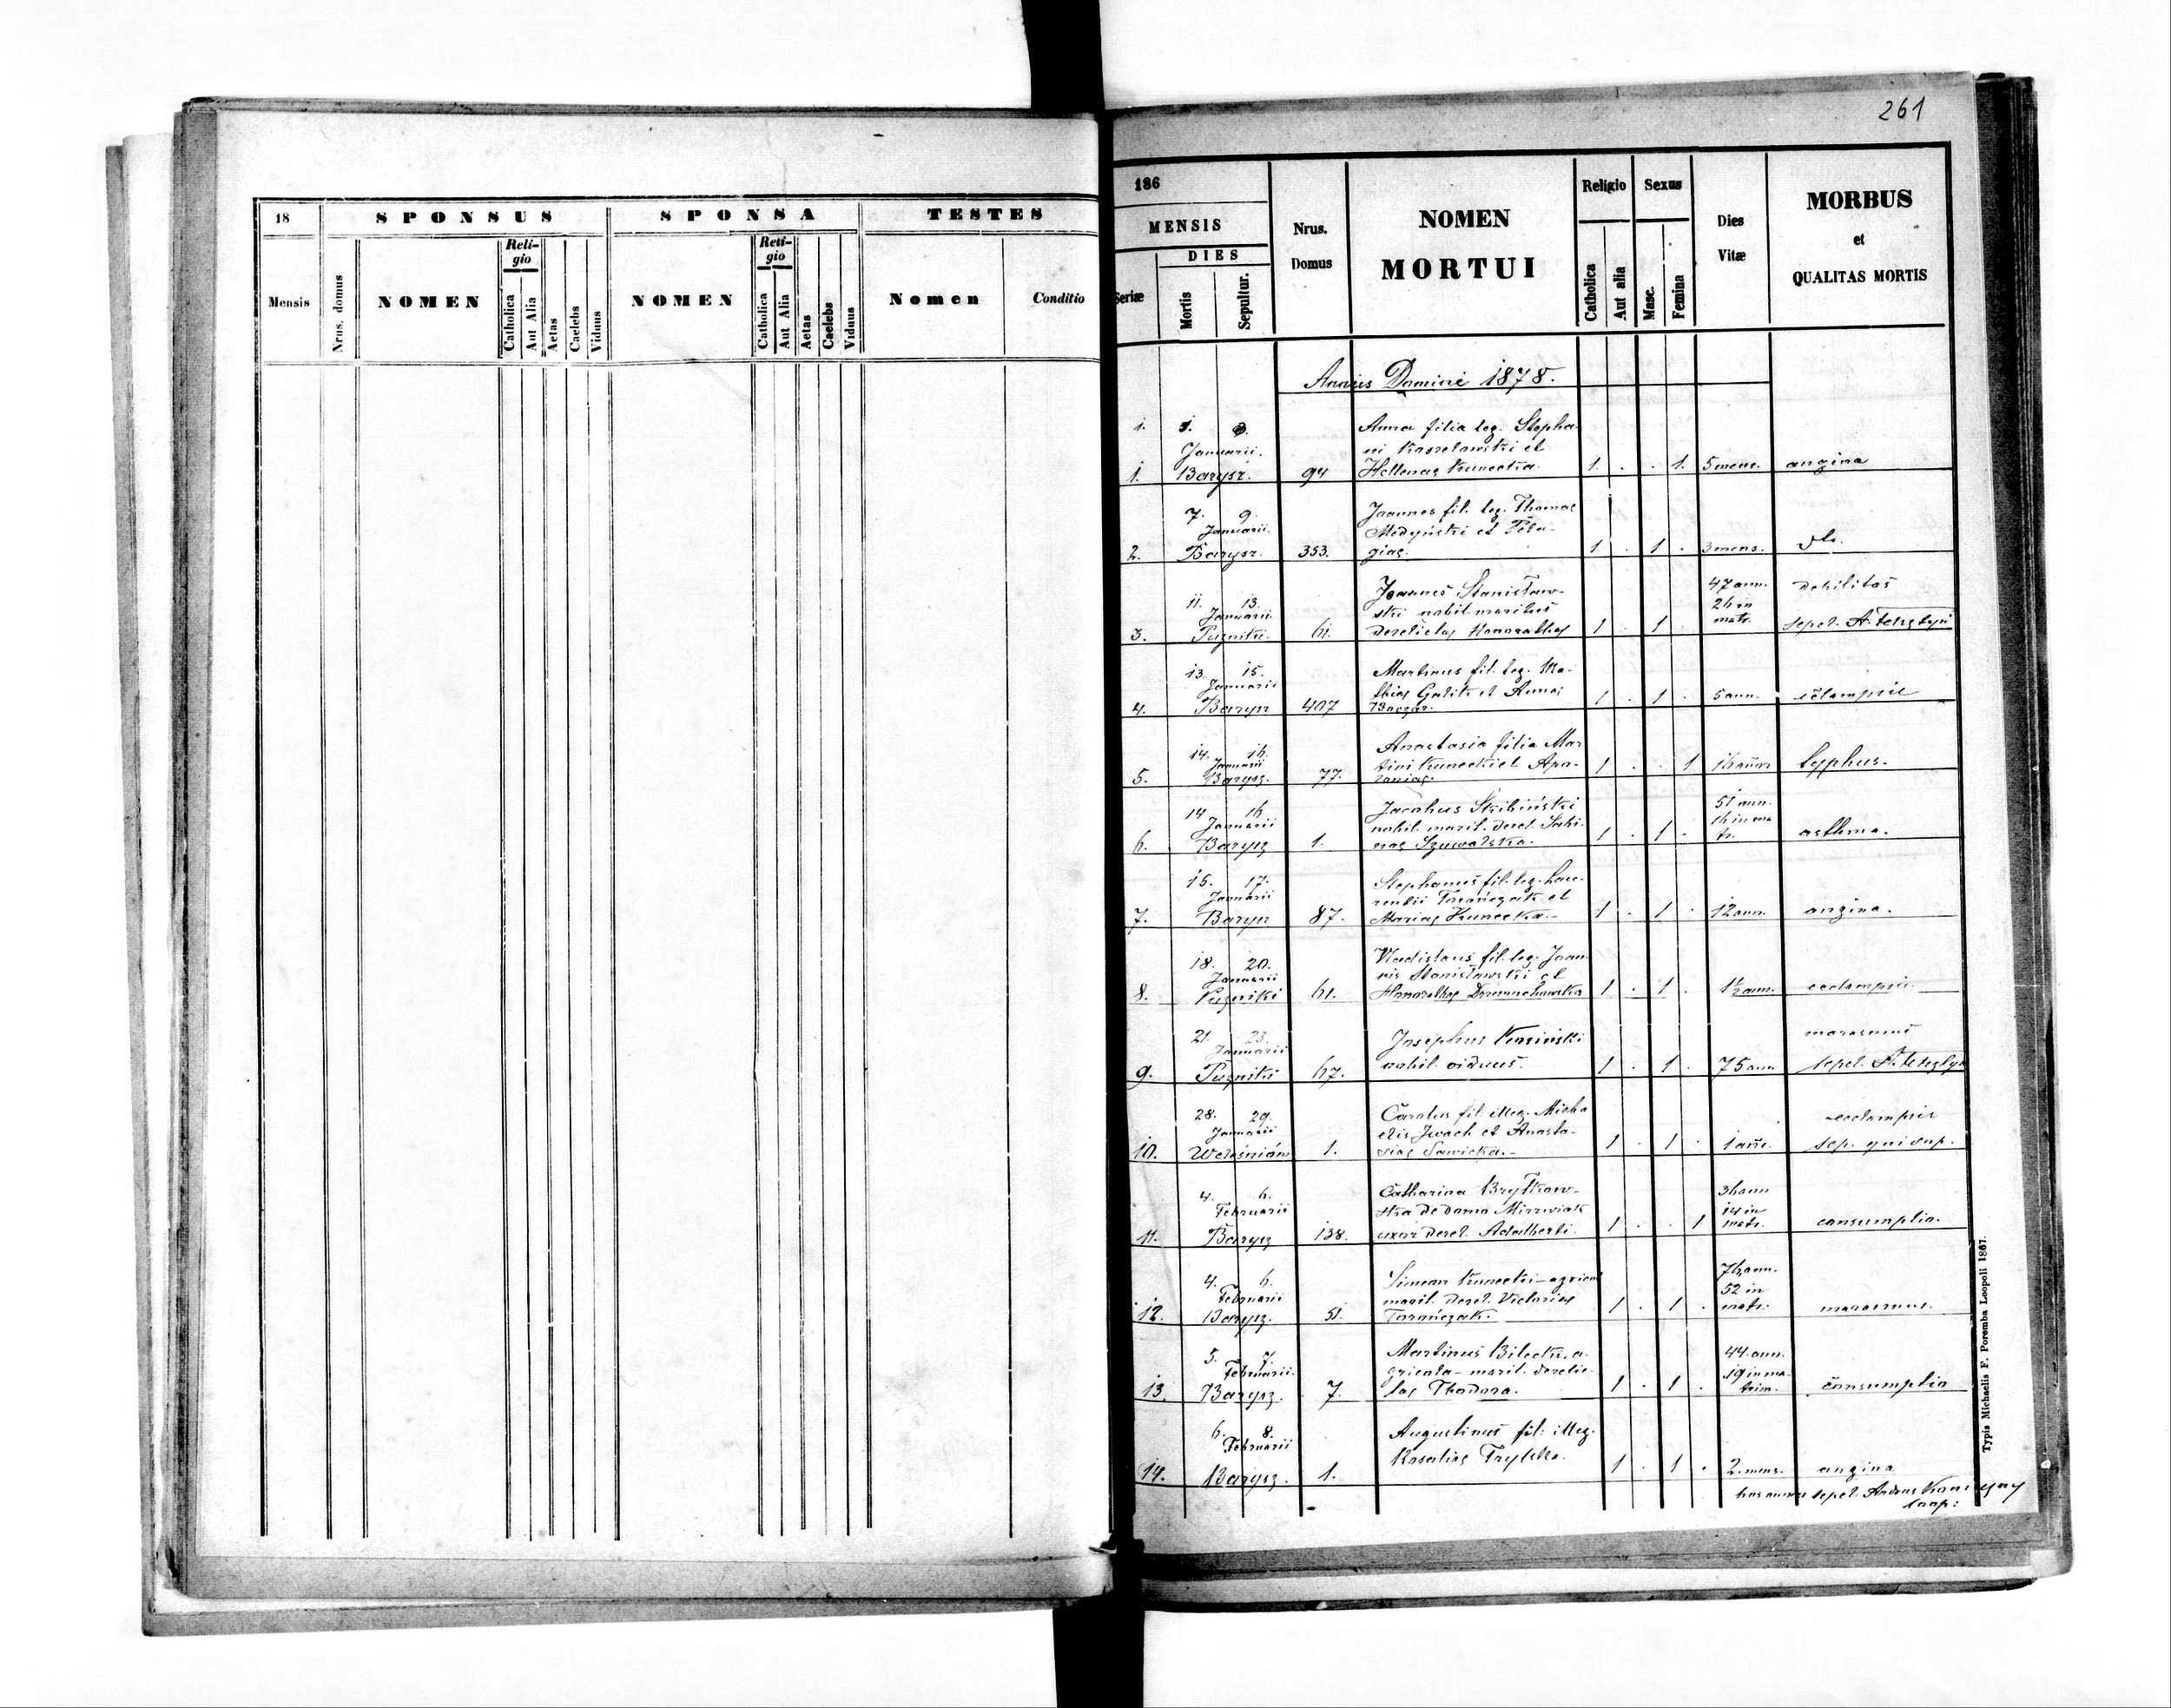 261
18
SPONSUS
SPONSA
TESTES
Mensis
Nrus. domus
NOMEN
Reli-
gio
Catholica
Aut Alia
Aetas
Caelebs
Viduus
NOMEN
Reli-
gio
Catholica
Aut Alia
Aetas
Caelebs
Viduus
Nomen
Conditio
186
MENSIS
DIES
Seriæ
Mortis
Sepultur.
Nrus.
Domus
NOMEN
MORTUI
Religio
Catholica
Aut alia
Sexus
Masc.
Femina
Dies
Vitæ
MORBUS
et
QUALITAS MORTIS
Annus Domini 1878.
1.
Januarii.
1. Barysz. 94
Anna filia leg. Stepha-
ni et
Hellenae Kunecka. 1. . . 1. 5 mens. angina
7. 9.
Januarii.
2. Barysz. 353.
Joannes fil. leg. Thomae
Medyński et Pela-
giae. 1 . 1 . 3 mens.
11. 13.
Januarii
3. Puzniki. 61.
Joannes Stanisław-
ski nobil. maritus
derelictae Honorathae 1 . 1 .
47 ann.
26 in
matr.
debilitas
sepel.
13. 15.
Januarii
4. Barysz 407
Martinus fil. leg. Ma-
thiae et Annae
1 . 1 . 5 ann. eclampsie
14. 16.
Januarii
5. Barysz. 77.
Anastasia filia Mar
tini Kunecki et Apo-
loniae. 1 . . 1 16 ann typhus.
14 16
Januarii
6. Barysz 1.
Jacobus Skibiński
nobil. marit. derel. Sabi-
nae Szuwalska. 1 . 1 .
51 ann.
16 in ma
tr. asthma.
15. 17.
Januarii
7. Barysz 87.
Stephanus fil. leg. Lau-
rentii Tarańczak et
Mariae Kunecka.- 1 . 1 . 12 ann. angina.
18. 20.
Januarii
8. Puzniki 61.
Vladislaus fil. leg. Joan
nis Stanisławski et
Honorathae 1 . 1 . 1½ ann. ecclampsie.
21. 23.
Januarii
9. Puzniki 67.
Josephus
nobil. viduus. 1 . 1 . 75 ann
marasmus
sepel.
28. 29.
Januarii
10. Weleśniów 1.
Carolus fil. illeg. Micha
elis Iwach et Anasta-
siae Sawicka.- 1 . 1 . 1 ann.
ecclampsis
sep. qui sup.
4. 6.
Februarii
11. Barysz 138.
Catharina Brytkow-
ska de domo
uxor derel. Adalberti. 1 . . 1
36 ann
14 in
matr. consumptio.
4. 6.
Februarii
12. Barysz. 51.
Simeon Kunecki - agricol
marit. derel. Victoriae
Tarańczak. 1 . 1 .
76 ann.
52 in
matr. marasmus.
5. 7.
Februarii.
13. Barysz. 7.
Martinus Bilecki, a-
gricola - marit. derelic-
tae Theodora. 1 . 1 .
44 ann.
19 in ma
trim. consumptio
6. 8.
Februarii
14. Barysz. 1.
Augustinus fil. illeg.
Rosaliae 1 . 1 . 2. mens. angina
hos omnes sepel. Andreas
Coop:
Typis Michaelis F. Poremba Leopoli 1867.